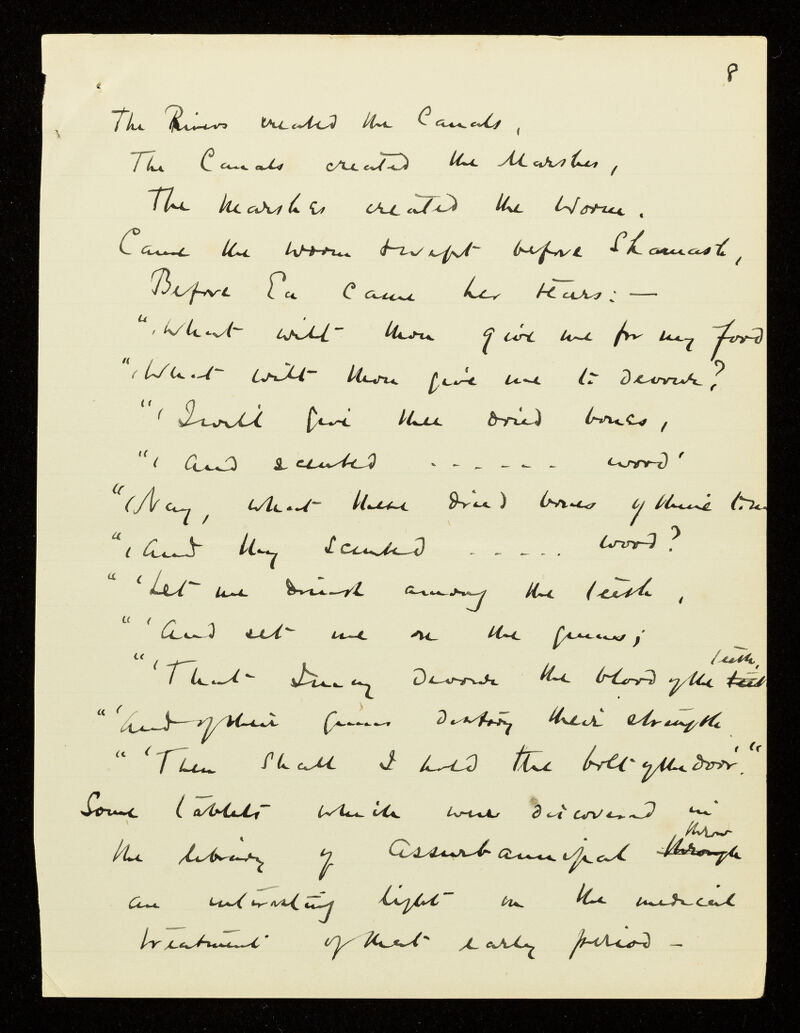 8
The Rivers created the Canals,
The Canals created the Marshes,
The Marshes created the Worm.
Came the worm & wept before Shamash,
Before Ea came her tears:—
"'What wilt thou give me for my food
"'What wilt thou give me to devour?
"'I will give thee dried bones,
"'And scented ------ wood'
"'Nay, what these dried bones of thine to me
"'And thy scented ----- wood?
"'Let me drink among the teeth,
"'And set me on the gums;
"'That I may devour the blood of the teeth,
"'And of their gums destroy their strength
"'Then shall I hold the bolt of the door'."
Some tablets which were discovered in
the library of Assurbannipal ~~through~~ throw
an interesting light on the medical
treatment of that early period —